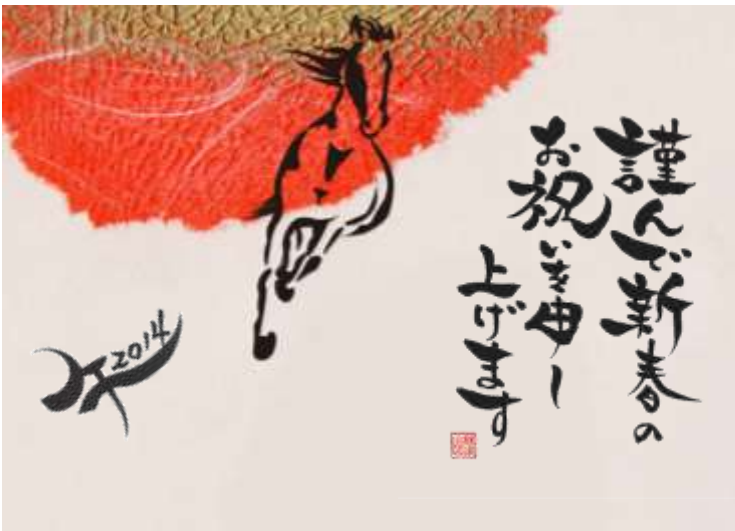 謹んで新春の
お祝いを申し
上げます
午2014